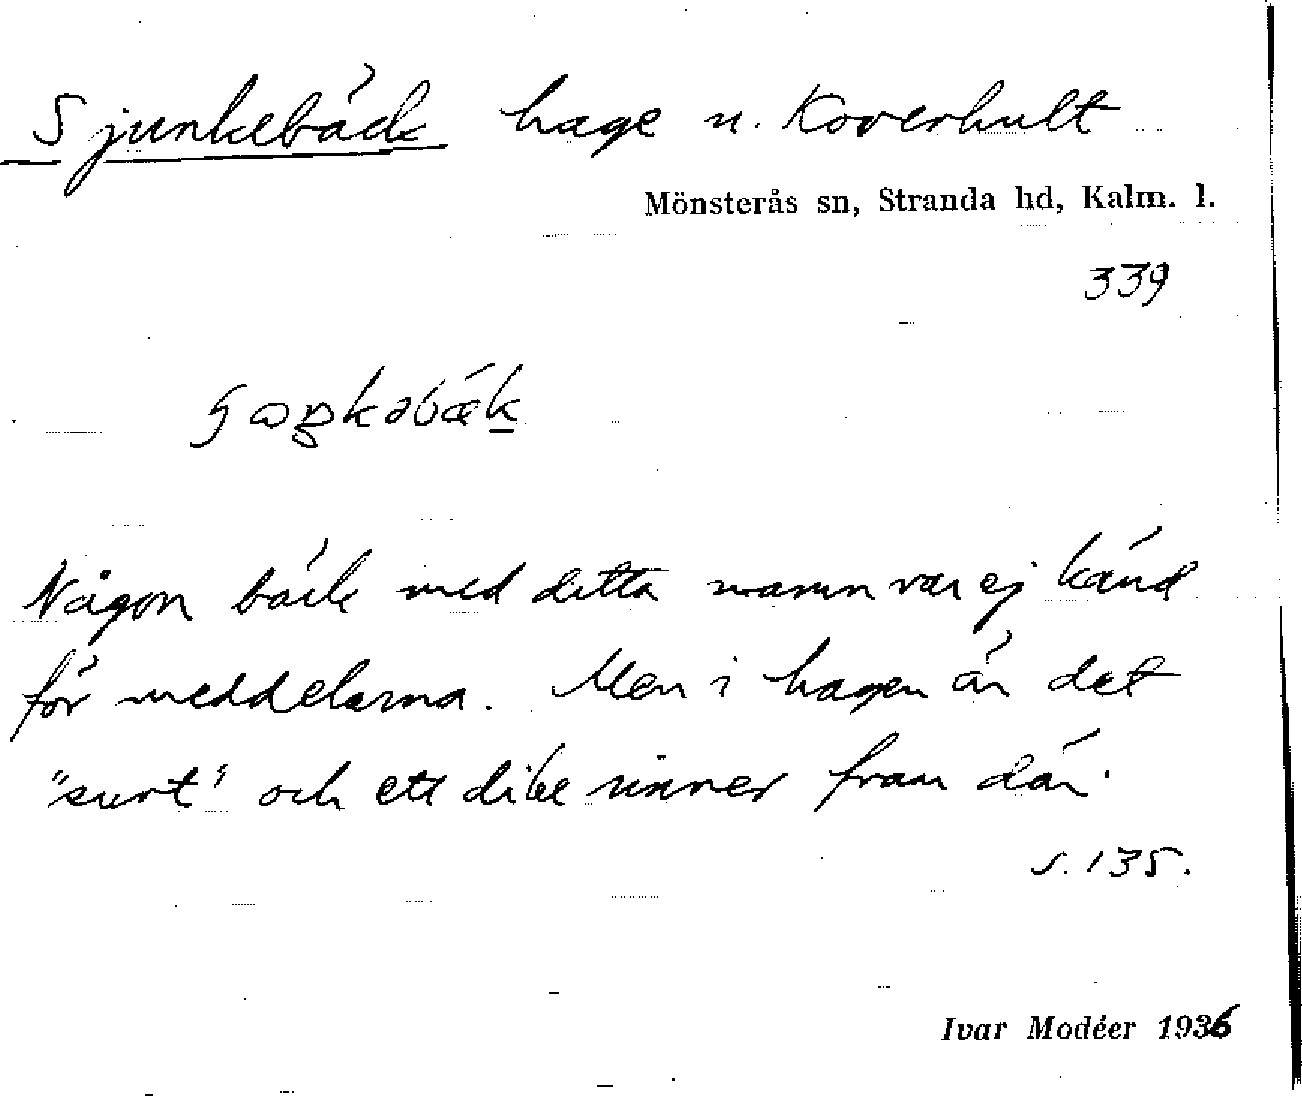 Sjunkebäck hage u. Koverhult
Mönsterås sn, Stranda hd, Kalm. l.
339
Någon bäck med detta namn var ej känd
för meddelarna. Men i hagen är det
"surt" och ett dike rinner fram där.
s. 135.
Ivar Modéer 1936